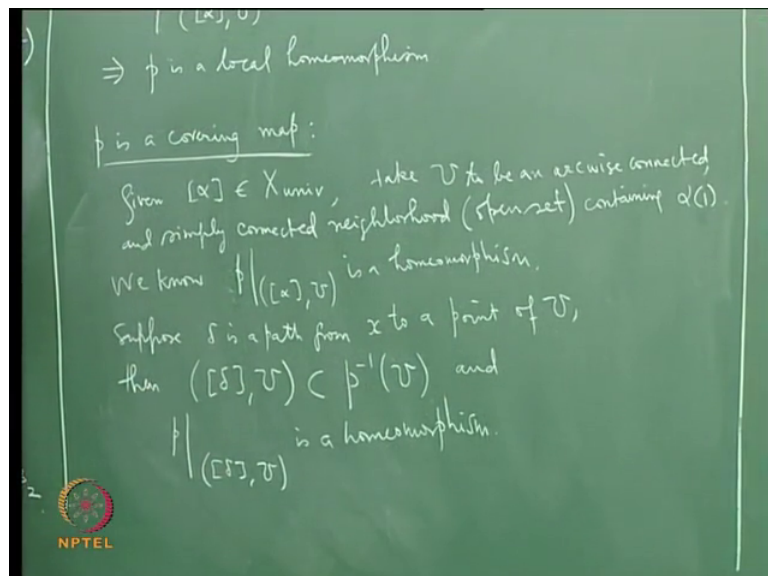 p|([α], U)
⇒ p is a local homeomorphism.
p is a covering map:
Given [α] ∈ Xuniv, take U to be an arcwise connected,
and simply connected neighborhood (open set) containing α(1).
We know p|([α], U) is a homeomorphism.
Suppose δ is a path from x to a point of U,
then ([δ], U) ⊂ p⁻¹(U) and
p|([δ], U) is a homeomorphism.
2
NPTEL